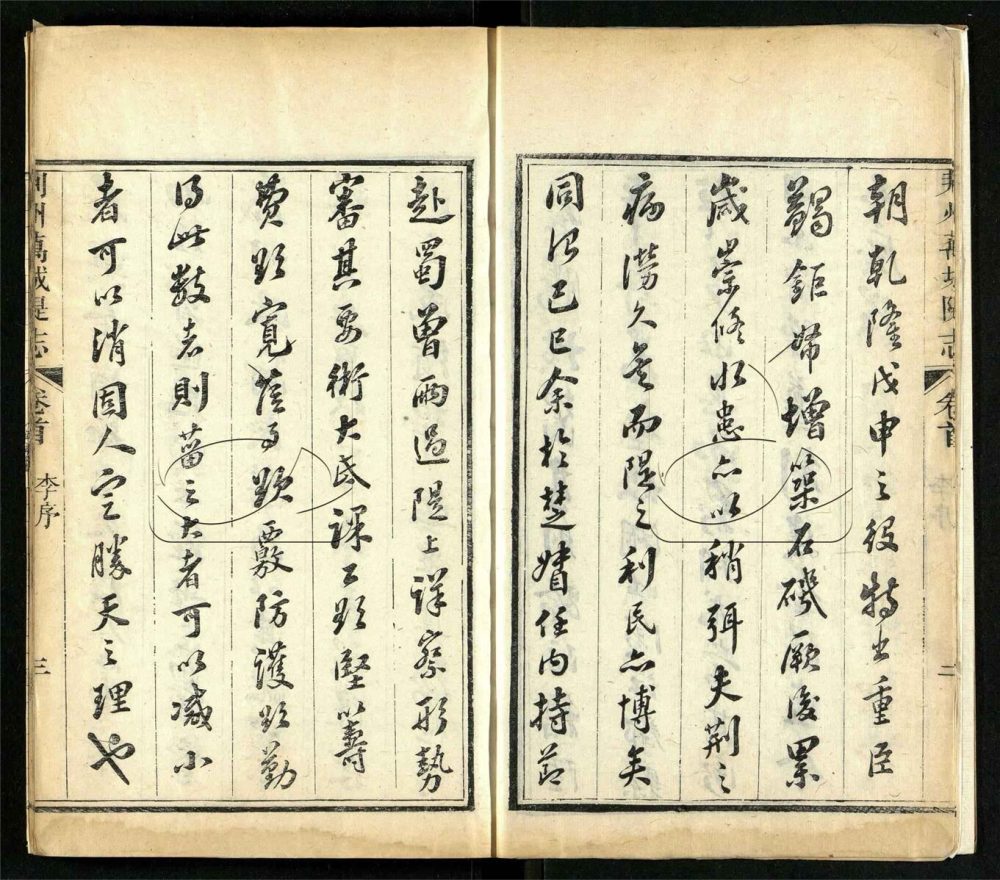 荊州萬城隄志 卷首 二
朝乾隆戊申之役特出重臣
蠲鉅帑增築石磯厥後累
歲崇修水患亦以稍弭夫荊之
病澇久矣而隄之利民亦博矣
同治己巳余於楚督任内持節
赴蜀曾兩過隄上詳察形勢
審其要術大氐課工欲堅籌
費欲寬蒞事欲覈防護欲勤
得此數者則菑之大者可以減小
者可以消固人定勝天之理也
荊州萬城隄志 卷首 李序 三